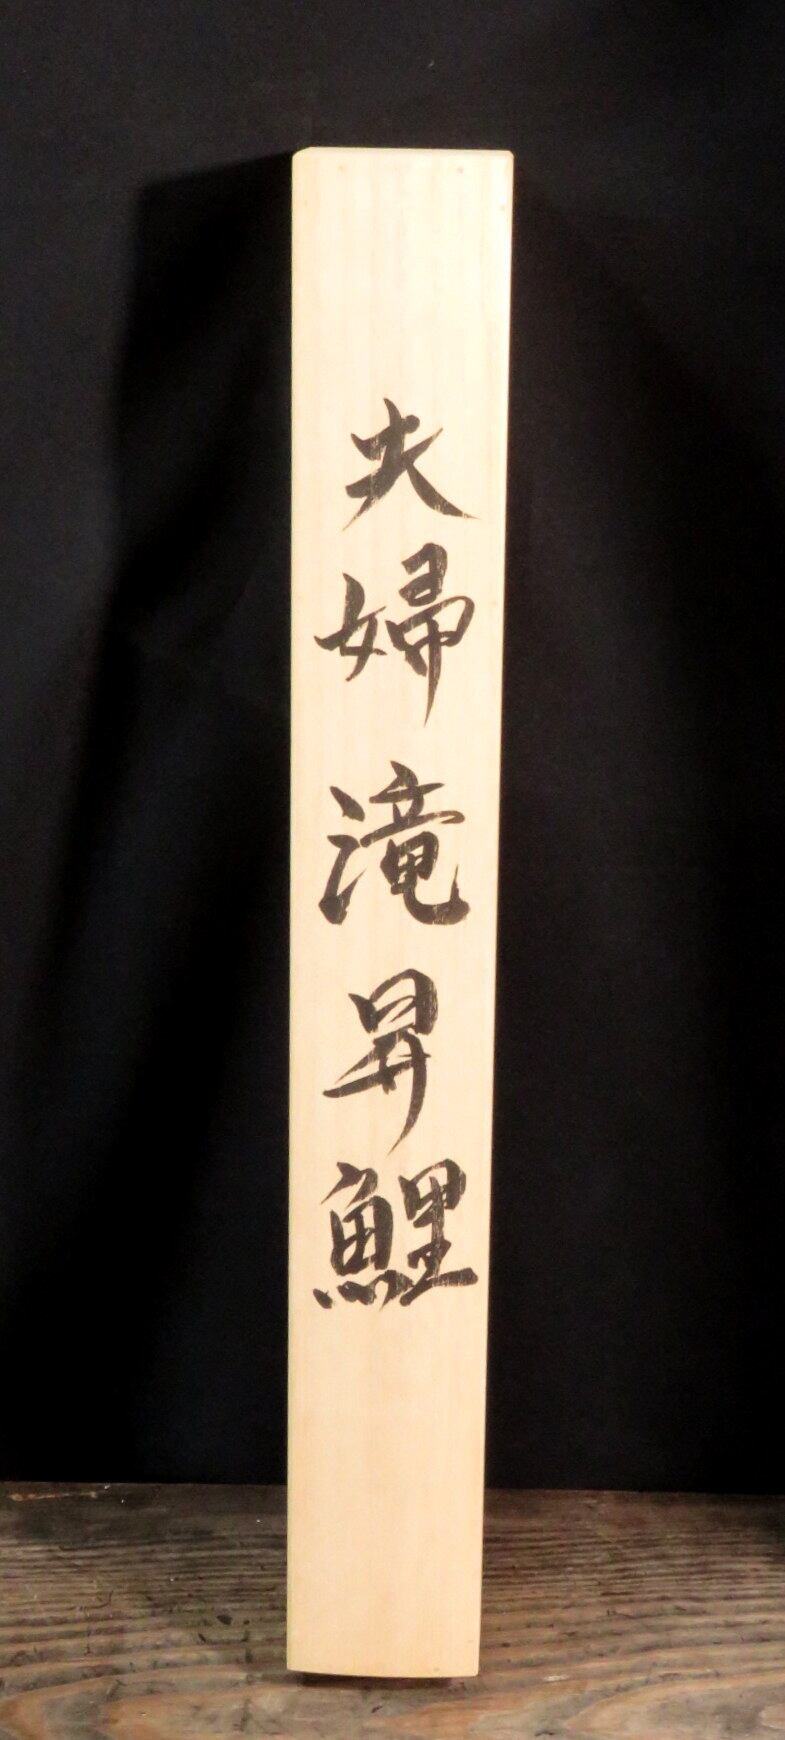 夫婦滝昇鯉